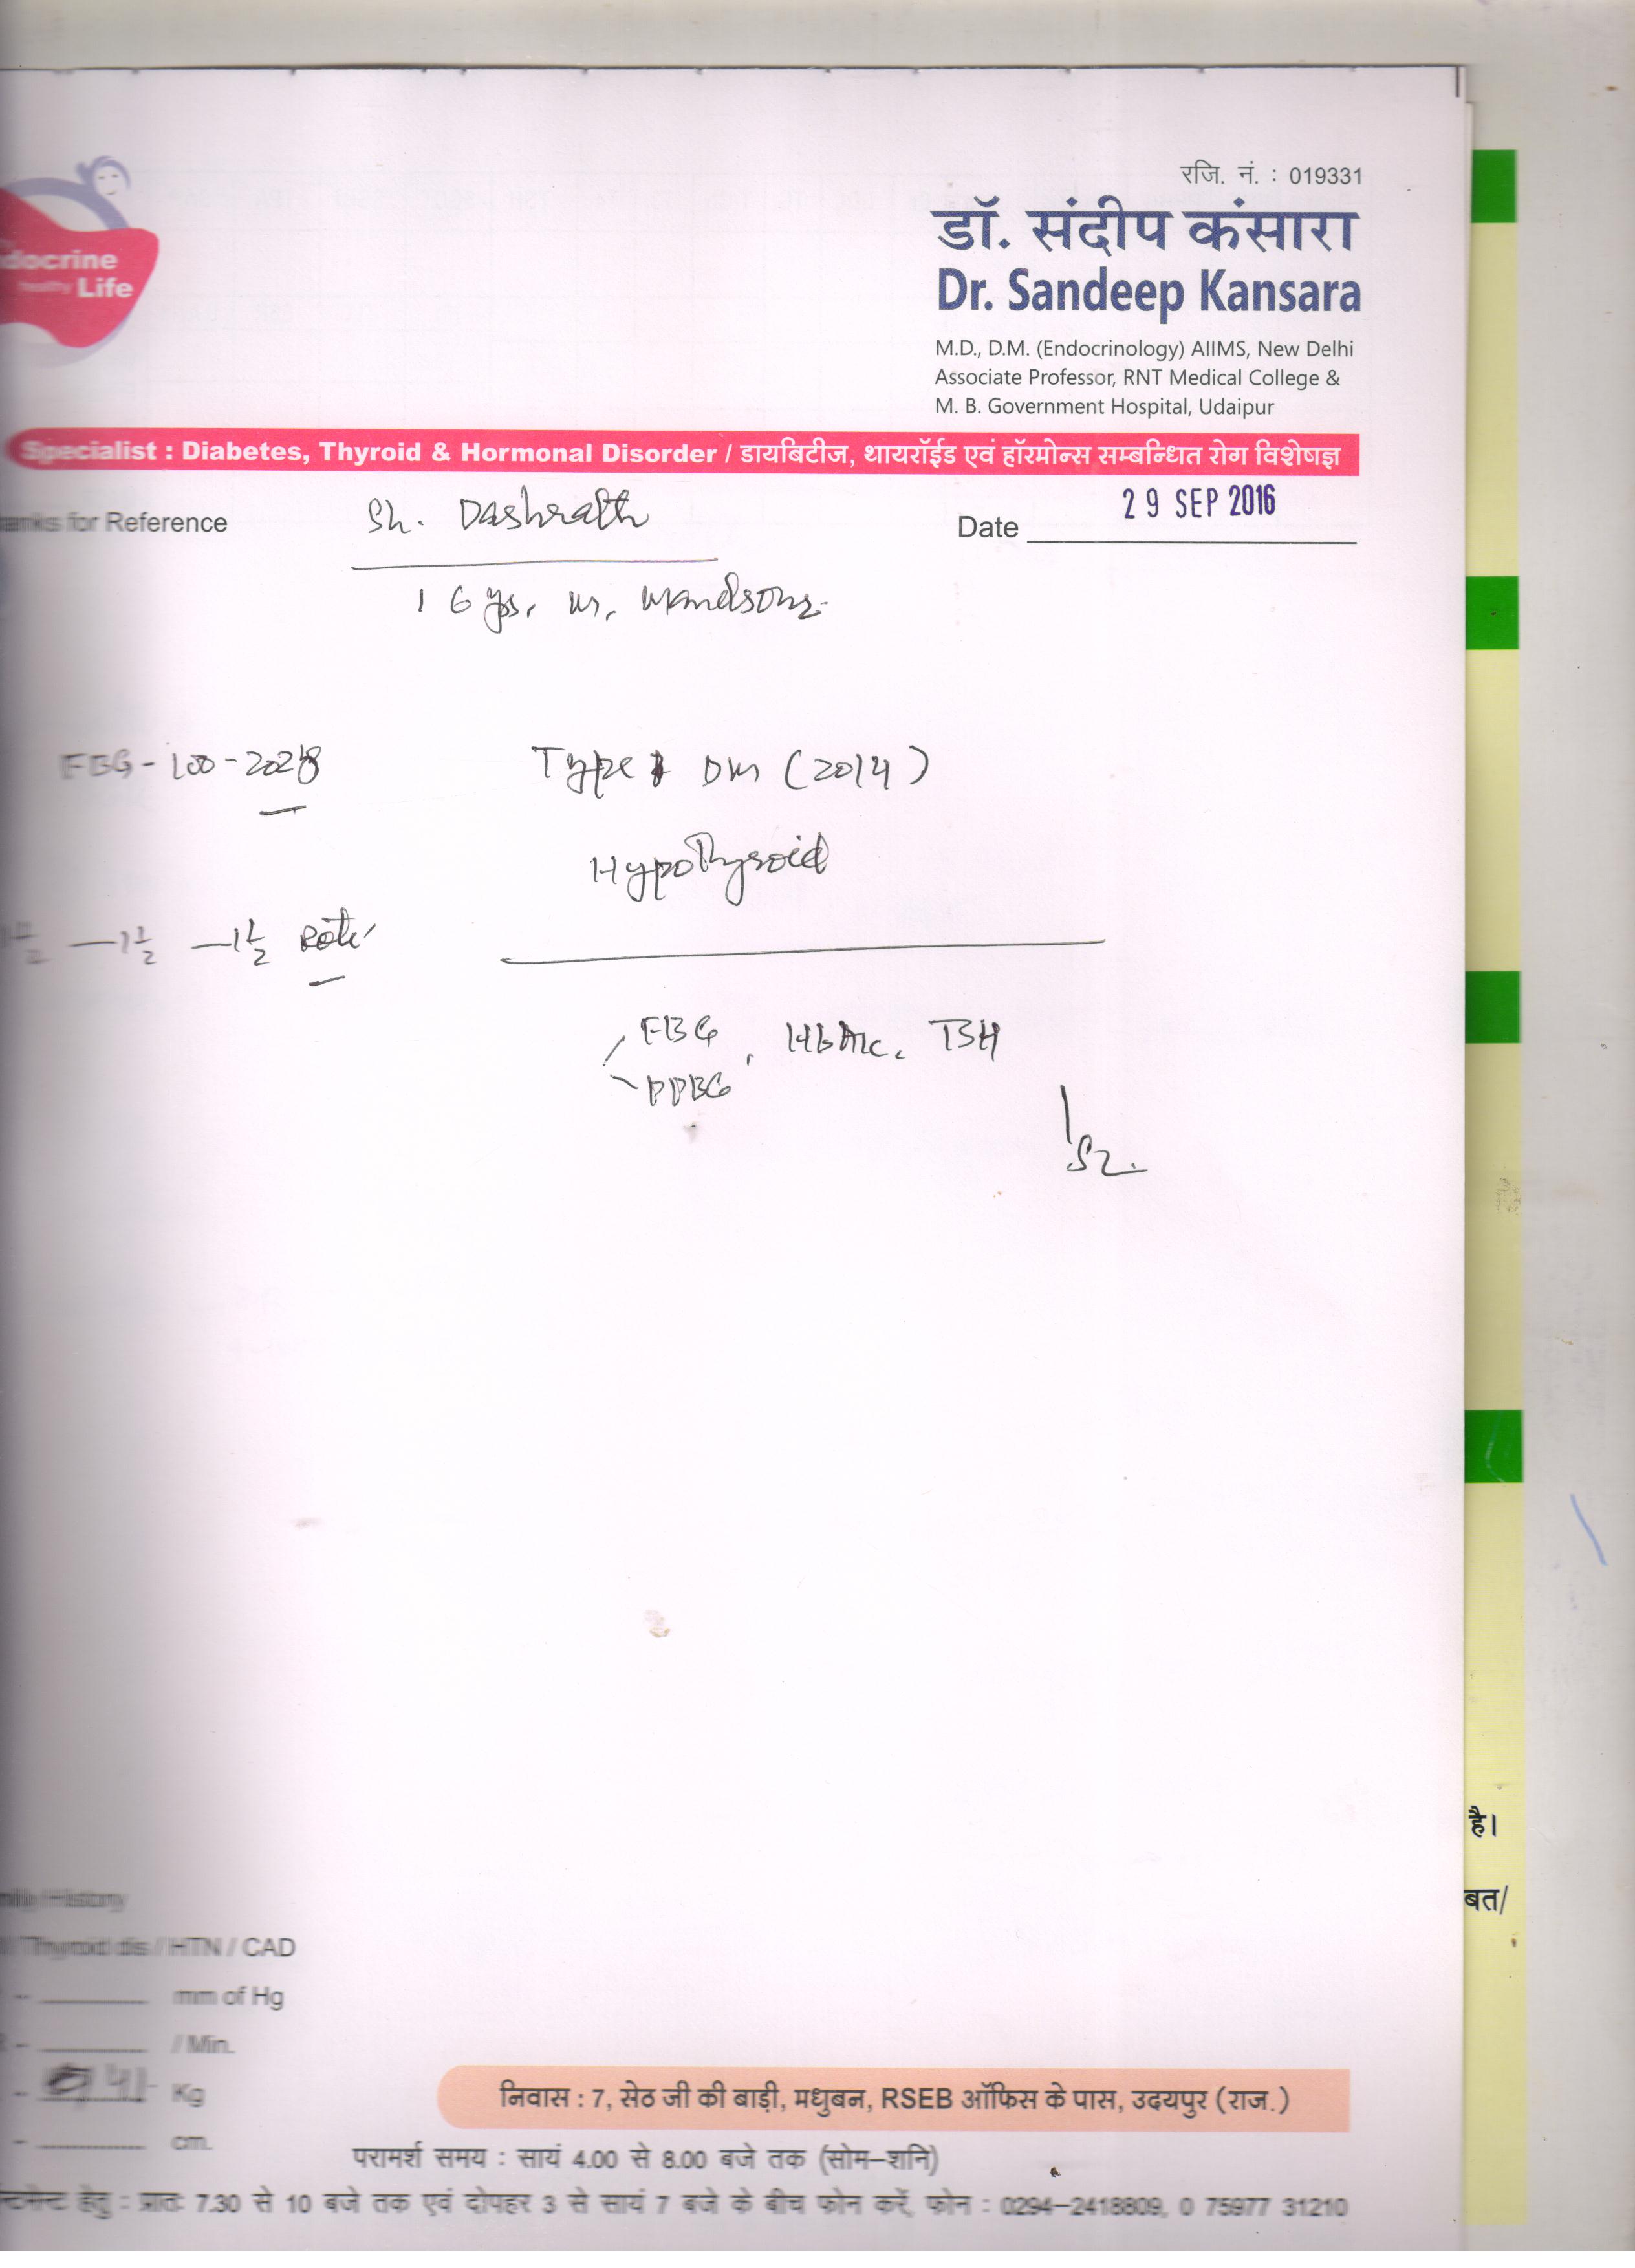 रजि. नं. : 019331
डॉ. संदीप कंसारा
Dr. Sandeep Kansara
docrine
healthy Life
M.D., D.M. (Endocrinology) AIIMS, New Delhi
Associate Professor, RNT Medical College &
M. B. Government Hospital, Udaipur
Specialist : Diabetes, Thyroid & Hormonal Disorder / डायबिटीज, थायरॉईड एवं हॉरमोन्स सम्बन्धित रोग विशेषज्ञ
anks for Reference Sh. Dashrath Date 29 SEP 2016
16 yrs, m, Mandsour
FBG - 100 - Type 1 DM (2014)
Hypothyroid
1/2 — 1 1/2 — 1 1/2 Roti
FBG
, HbA1c, TSH
PPBG
है।
बत/
mily History
/ Thyroid dis / HTN / CAD
- mm of Hg
- / Min.
- 41 Kg
- cm.
निवास : 7, सेठ जी की बाड़ी, मधुबन, RSEB ऑफिस के पास, उदयपुर (राज.)
परामर्श समय : सायं 4.00 से 8.00 बजे तक (सोम–शनि)
न्टमेन्ट हेतु : प्रातः 7.30 से 10 बजे तक एवं दोपहर 3 से सायं 7 बजे के बीच फोन करें, फोन : 0294–2418809, 0 75977 31210